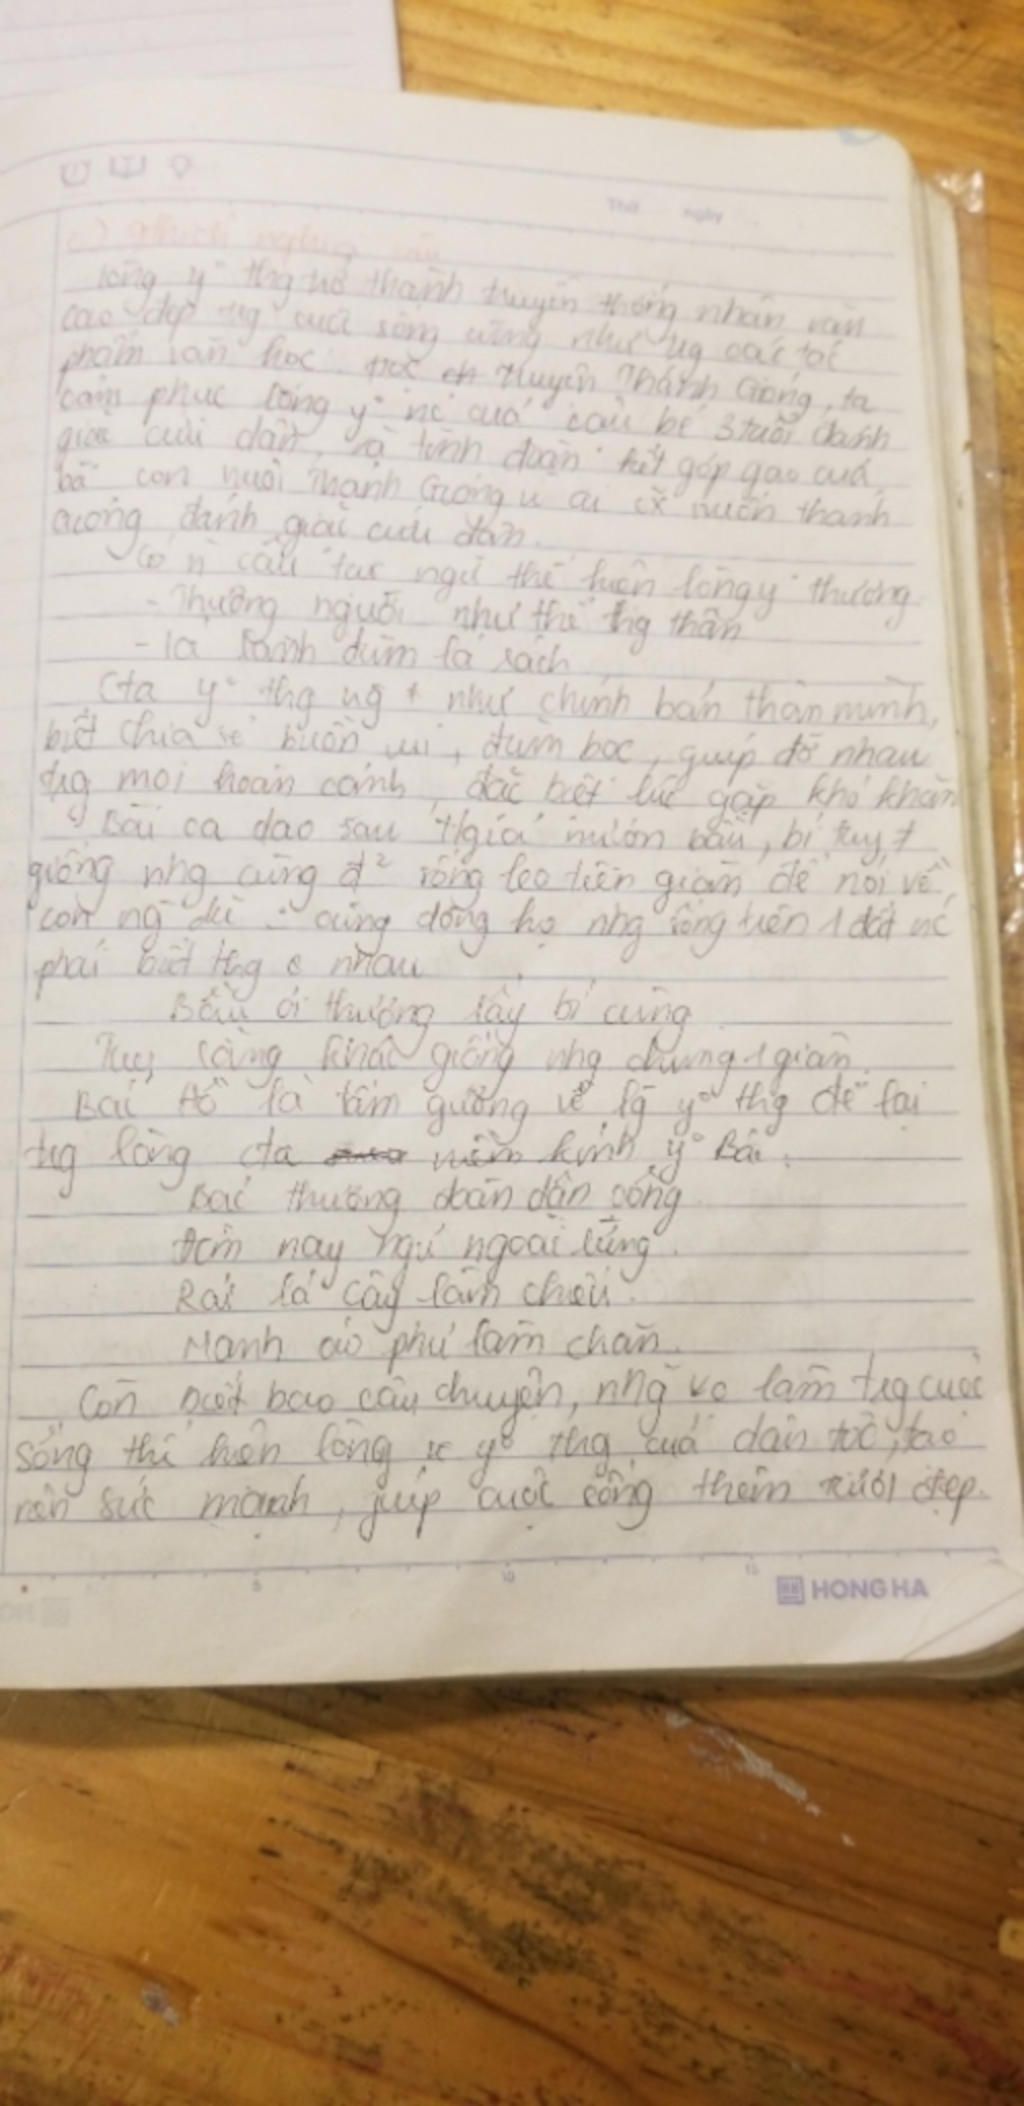 Thứ ngày
c)
lòng yº thg trở thành truyền thống nhân văn
cao đẹp trg cuộc sống cũng như trg các tác
phẩm văn học. Đọc truyện Thánh Gióng, ta
cảm phục lòng yº nc của cậu bé 3 tuổi đánh
giặc cứu dân, và tình đoàn kết góp gạo của
bà con nuôi Thánh Gióng ai muốn thánh
gióng đánh giặc cứu dân.
Có n câu tục ngữ thể hiện lòng yº thương
- Thương người như thể thg thân
- lá lành đùm lá rách
Cta yº thg ng + như chính bản thân mình,
biết chia sẻ buồn vui, đùm bọc, giúp đỡ nhau
trg mọi hoàn cảnh, đặc biệt lúc gặp khó khăn
Bài ca dao sau tgiả mượn bầu, bí tuy +
giống nhg cùng sống leo trên giàn để nói về
con ng cùng dòng họ nhg sống trên 1 đất nc
phải biết thg nhau
Bầu ơi thương lấy bí cùng
Tuy rằng khác giống nhg chung 1 giàn.
Bác Hồ là tấm gương về lg yº thg để lại
trg lòng cta niềm kính yº Bác:
Bác thương đoàn dân công
Đêm nay ngủ ngoài rừng.
Rải lá cây làm chiếu.
Manh áo phủ làm chăn.
Còn biết bao câu chuyện, nhg làm trg cuộc
sống thể hiện lòng yº thg của dân tộc, tạo
nên sức mạnh, giúp cuộc sống thêm tươi đẹp.
5 10 15
HONG HA